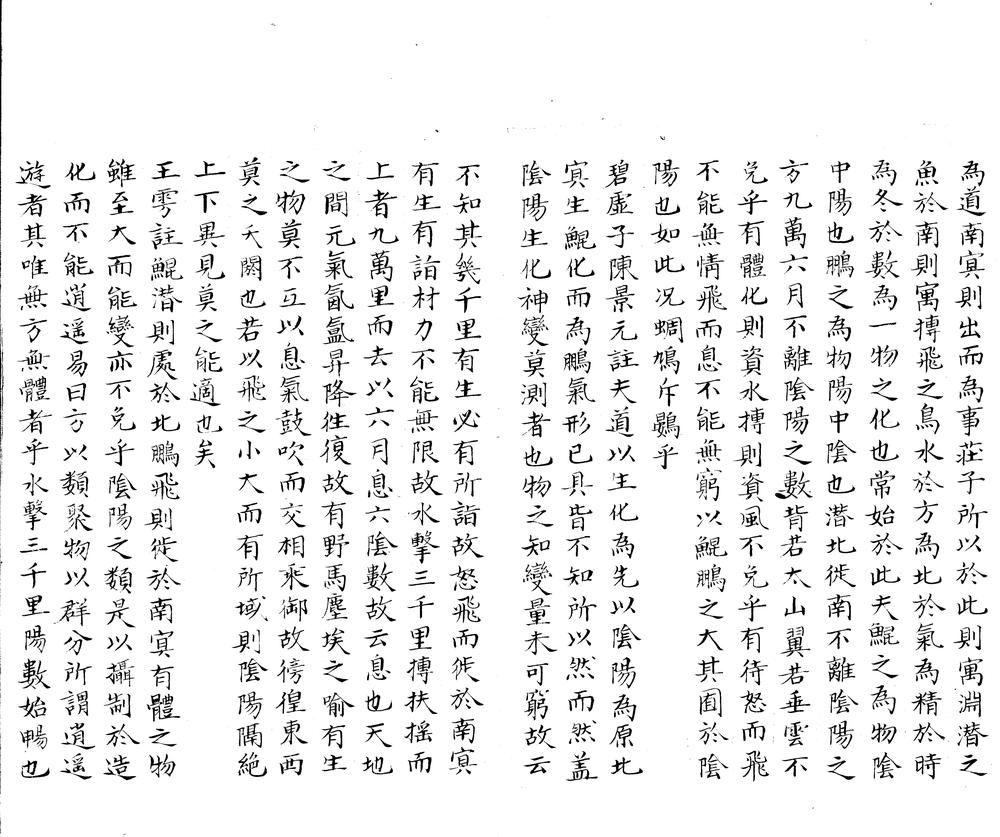 為道南冥則出而為事莊子所以於此則寓淵潜之
魚於南則寓摶飛之鳥水於方為北於氣為精於時
為冬於數為一物之化也常始於此夫鯤之為物陰
中陽也鵬之為物陽中陰也潜北徙南不離陰陽之
方九萬六月不離陰陽之數背若太山翼若垂雲不
免乎有體化則資水摶則資風不免乎有待怒而飛
不能無情飛而息不能無窮以鯤鵬之大其囿於陰
陽也如此况蜩鳩斥鷃乎
碧虛子陳景元註夫道以生化為先以陰陽為原北
冥生鯤化而為鵬氣形已具皆不知所以然而然盖
陰陽生化神變莫測者也物之知變量未可窮故云
不知其幾千里有生必有所詣故怒飛而徙於南冥
有生有詣材力不能無限故水擊三千里摶扶摇而
上者九萬里而去以六月息六陰數故云息也天地
之間元氣氤氳昇降徃復故有野馬塵埃之喻有生
之物莫不互以息氣鼓吹而交相乘御故徬徨東西
莫之夭閼也若以飛之小大而有所域則陰陽隔絶
上下異見莫之能適也矣
王雱註鯤潜則處於北鵬飛則徙於南冥有體之物
雖至大而能變亦不免乎陰陽之類是以攝制於造
化而不能逍遥易曰方以類聚物以群分所謂逍遥
遊者其唯無方無體者乎水擊三千里陽數始暢也